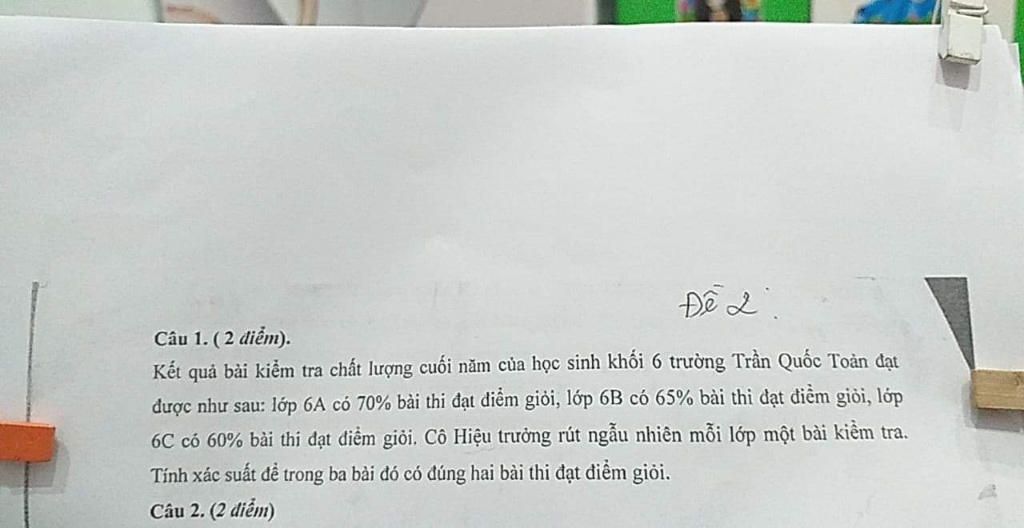 Đề 2.
Câu 1. ( 2 điểm).
Kết quả bài kiểm tra chất lượng cuối năm của học sinh khối 6 trường Trần Quốc Toản đạt
được như sau: lớp 6A có 70% bài thi đạt điểm giỏi, lớp 6B có 65% bài thi đạt điểm giỏi, lớp
6C có 60% bài thi đạt điểm giỏi. Cô Hiệu trưởng rút ngẫu nhiên mỗi lớp một bài kiểm tra.
Tính xác suất để trong ba bài đó có đúng hai bài thi đạt điểm giỏi.
Câu 2. (2 điểm)